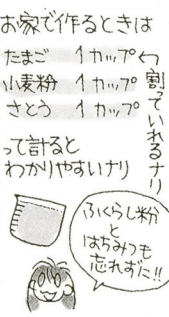 お家で作るときは
たまご 1カップ
小麦粉 1カップ
さとう 1カップ
割っていれるナリ
って計ると
わかりやすいナリ
ふくらし粉
と
はちみつも
忘れずに!!